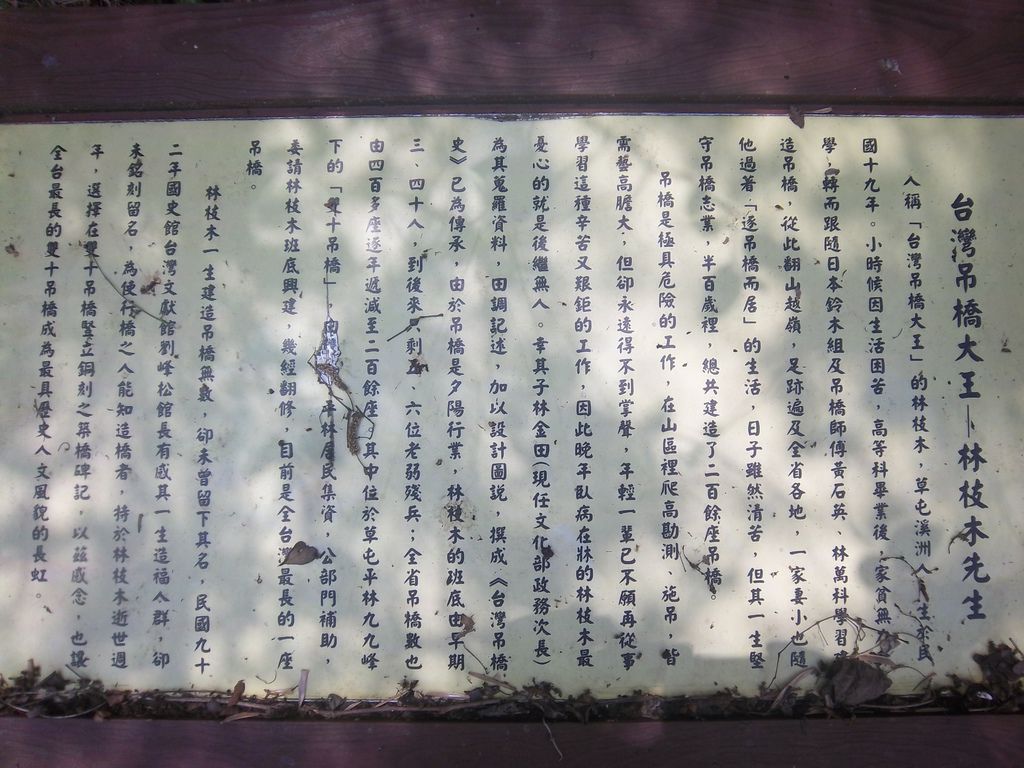 台灣吊橋大王—林枝木先生
人稱「台灣吊橋大王」的林枝木，草屯溪洲人，生於民
國十九年。小時候因生活困苦，高等科畢業後，家貧無
學，轉而跟隨日本鈴木組及吊橋師傅黃石英、林萬科學習建
造吊橋，從此翻山越嶺，足跡遍及全省各地，一家妻小也隨
他過著「逐吊橋而居」的生活，日子雖然清苦，但其一生堅
守吊橋志業，半百歲裡，總共建造了二百餘座吊橋。
吊橋是極具危險的工作，在山區裡爬高勘測、施吊，皆
需藝高膽大，但卻永遠得不到掌聲，年輕一輩已不願再從事
學習這種辛苦又艱鉅的工作，因此晚年臥病在牀的林枝木最
憂心的就是後繼無人。幸其子林金田(現任文化部政務次長)
為其蒐羅資料，田調記述，加以設計圖說，撰成《台灣吊橋
史》已為傳承，由於吊橋是夕陽行業，林枝木的班底由早期
三、四十人，到後來剩五、六位老弱殘兵；全省吊橋數也
由四百多座逐年遞減至二百餘座，其中位於草屯平林九九峰
下的「雙十吊橋」，平林居民集資，公部門補助，
委請林枝木班底興建，幾經翻修，目前是全台灣最長的一座
吊橋。
林枝木一生建造吊橋無數，卻未曾留下其名，民國九十
二年國史館台灣文獻館劉峰松館長有感其一生造福人群，卻
未銘刻留名，為使行橋之人能知造橋者，特於林枝木逝世週
年，選擇在雙十吊橋豎立銅刻之築橋碑記，以茲感念，也讓
全台最長的雙十吊橋成為最具歷史人文風貌的長虹。